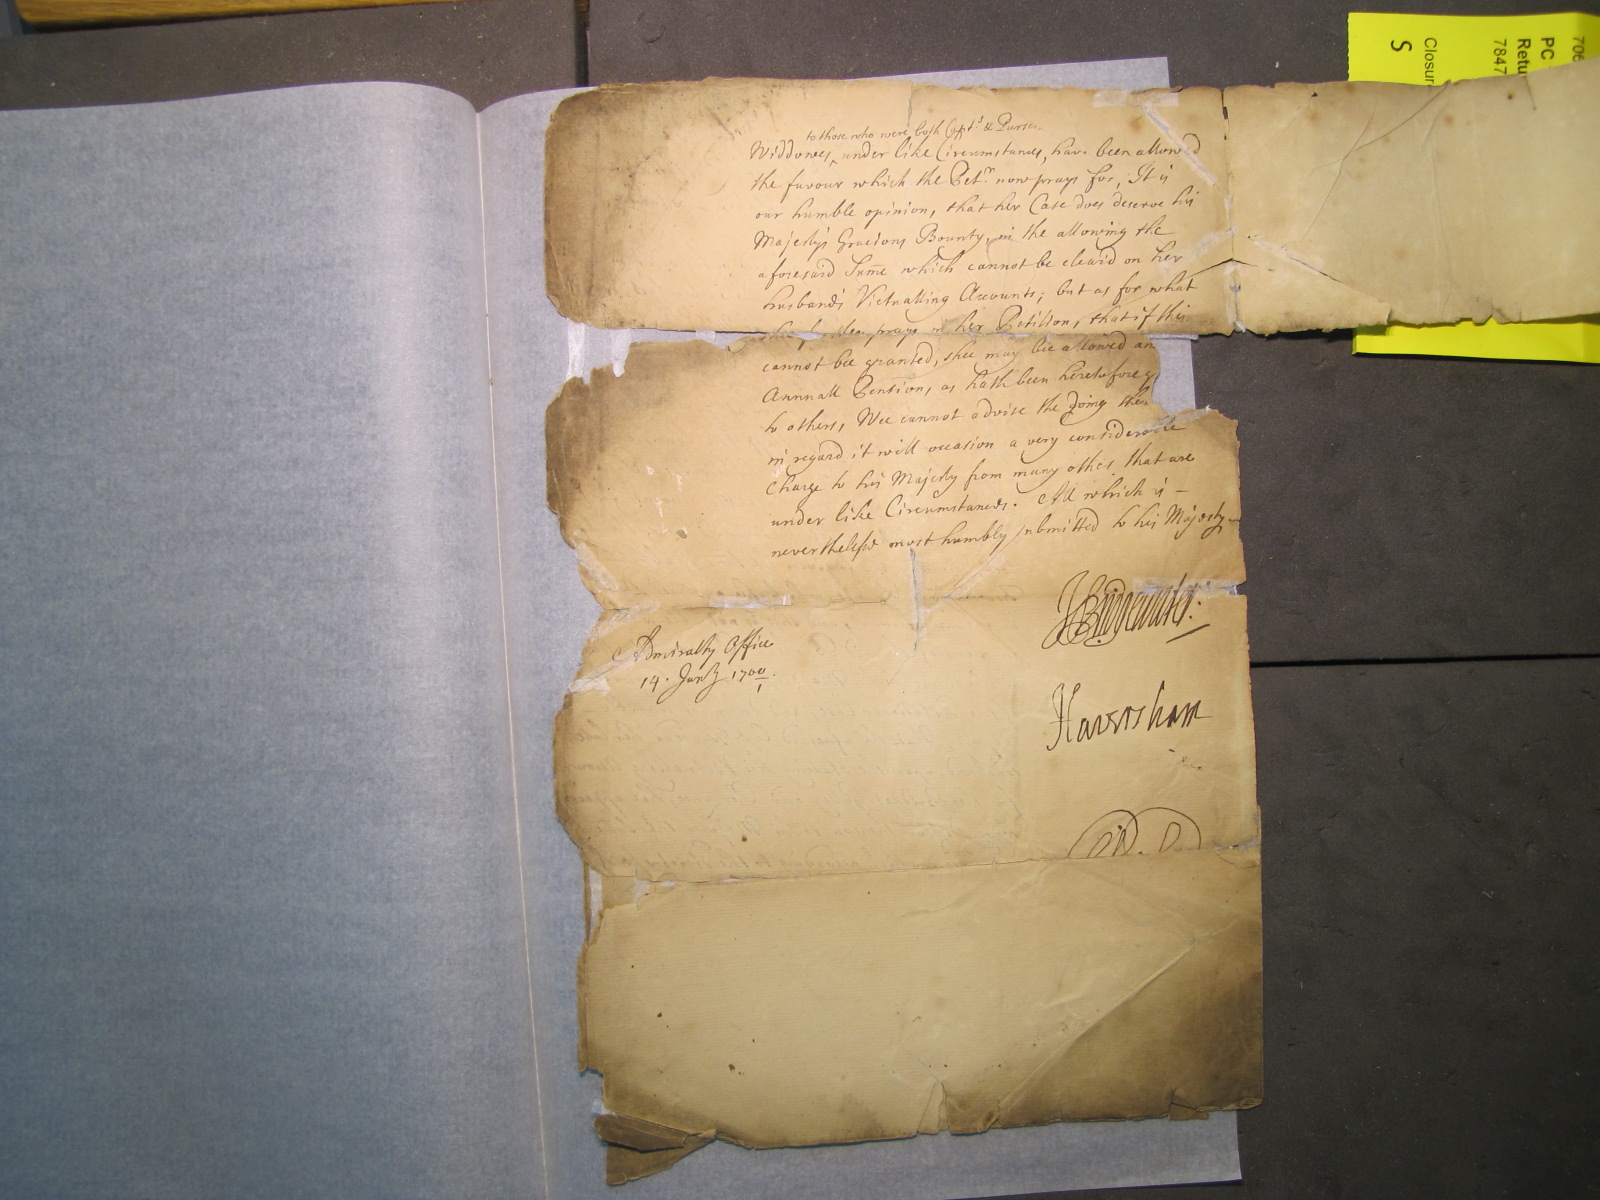 to those who were both Capt.s & Purser
Widdowes, under like Circumstances, have been allowed
the favour which the Pet.r now prays for, It is
our humble opinion, that her Case does deserve his
Majesty's Gracious Bounty, in the allowing the
aforesaid Sume which cannot be cleard on her
husband's Victualling Accounts; but as for what
prays in her Petition, that if this
cannot bee granted, shee may bee allowed an
Annuall Pention, as hath been heretofore
to others, Wee cannot advise the doing
in regard it will occasion a very considerable
Charge to his Majesty from many others that are
under like Circumstances. All which is –
neverthelesse most humbly submitted to his Majesty
Bridgewater.
Admiralty Office
14. Jan.ry 1700/1
Haversham
706
PC
Retu
7847
Closur
S